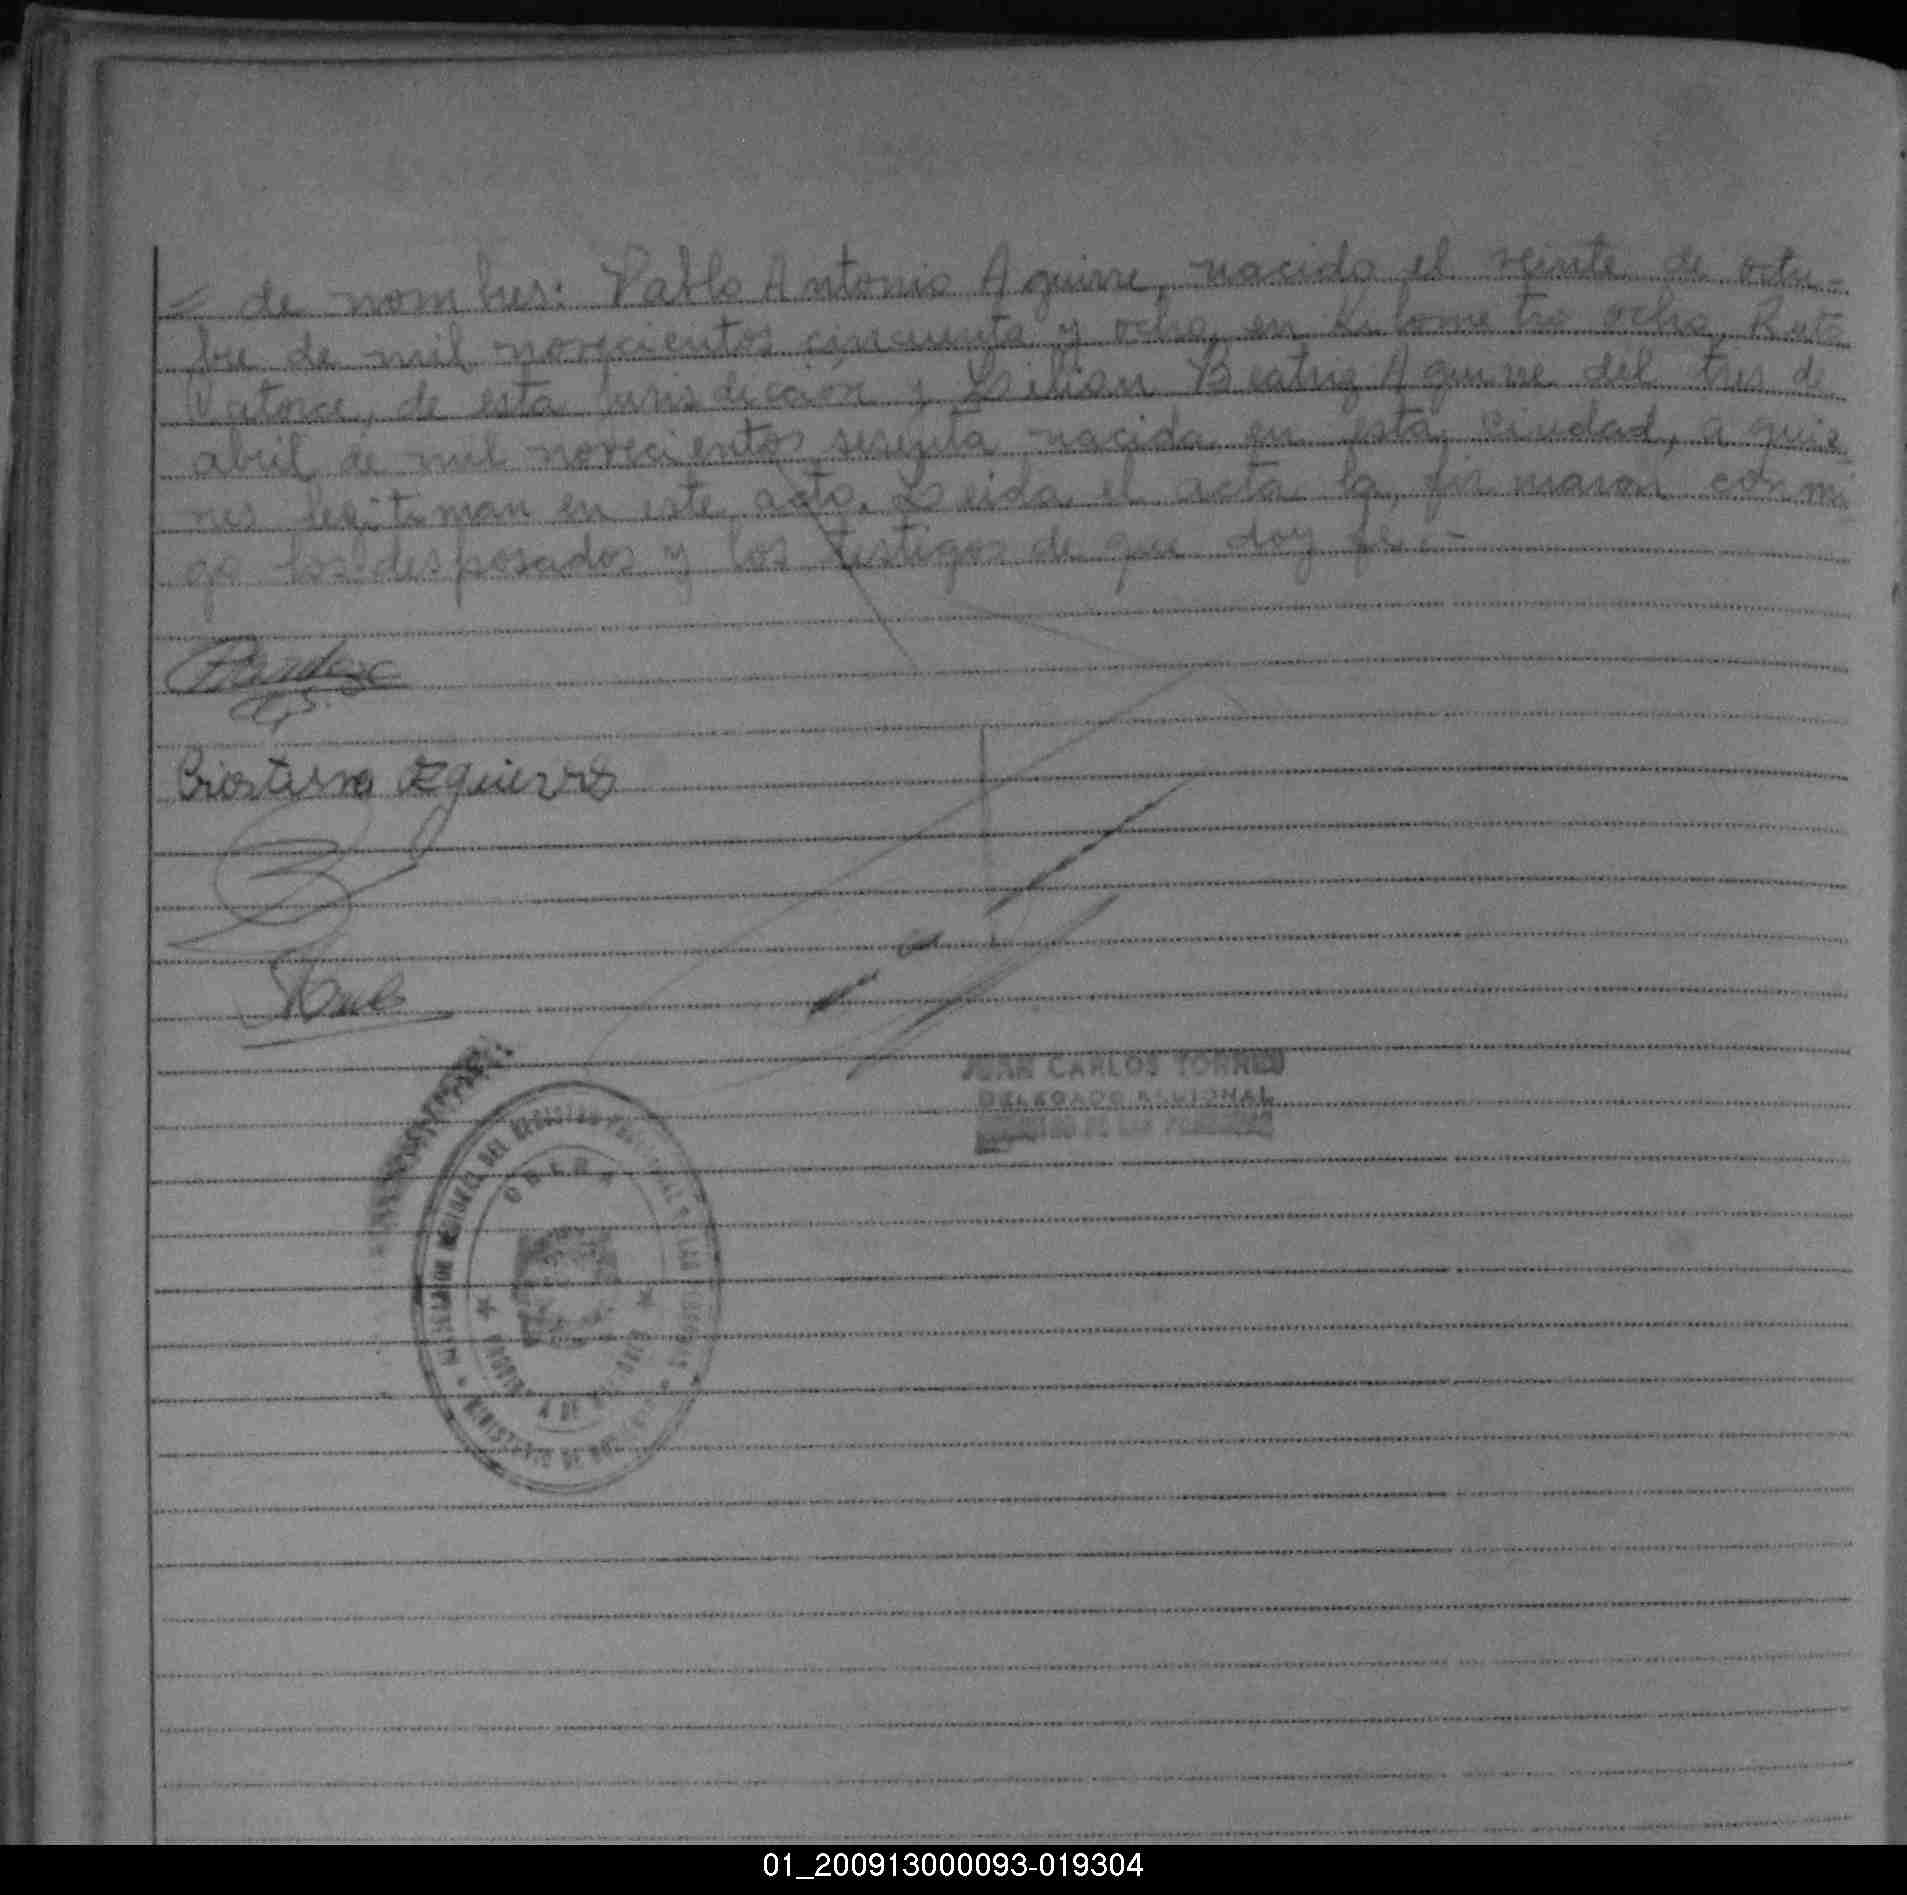 = de nombres: Pablo Antonio Aguirre, nacido el veinte de octu-
bre de mil novecientos cincuenta y ocho, en Kilometro ocho, Ruta
Catorce, de esta jurisdicción y Lilian Beatriz Aguirre del tres de
abril de mil novecientos sesenta nacida en esta ciudad, a quie-
nes legitiman en este acto. Leida el acta la firmaron conmi-
go los desposados y los testigos de que doy fe.-
JUAN CARLOS TORRES
DELEGADO REGIONAL
DE LAS PERSONAS
DELEGACION REGIONAL DEL REGISTRO PROVINCIAL DE LAS PERSONAS
OBERA
MINISTERIO DE
01_200913000093-019304